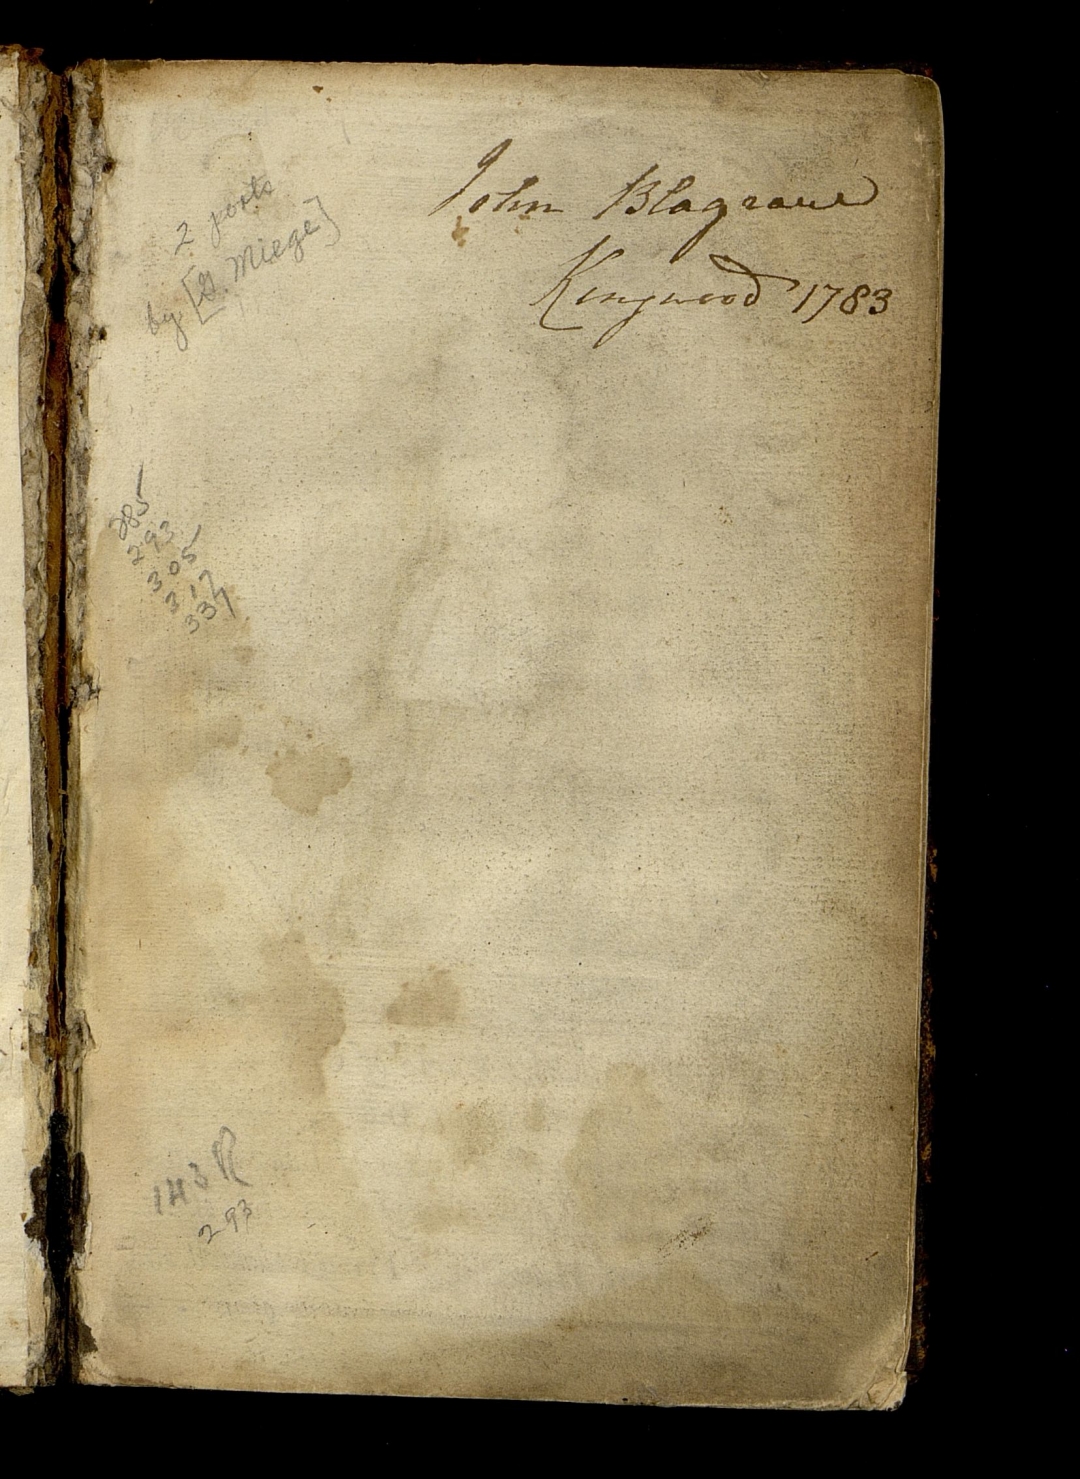 John Blagrave
Kingwood 1783
2 parts
by [G. Miege]
285
293
305
317
337
143 R
293